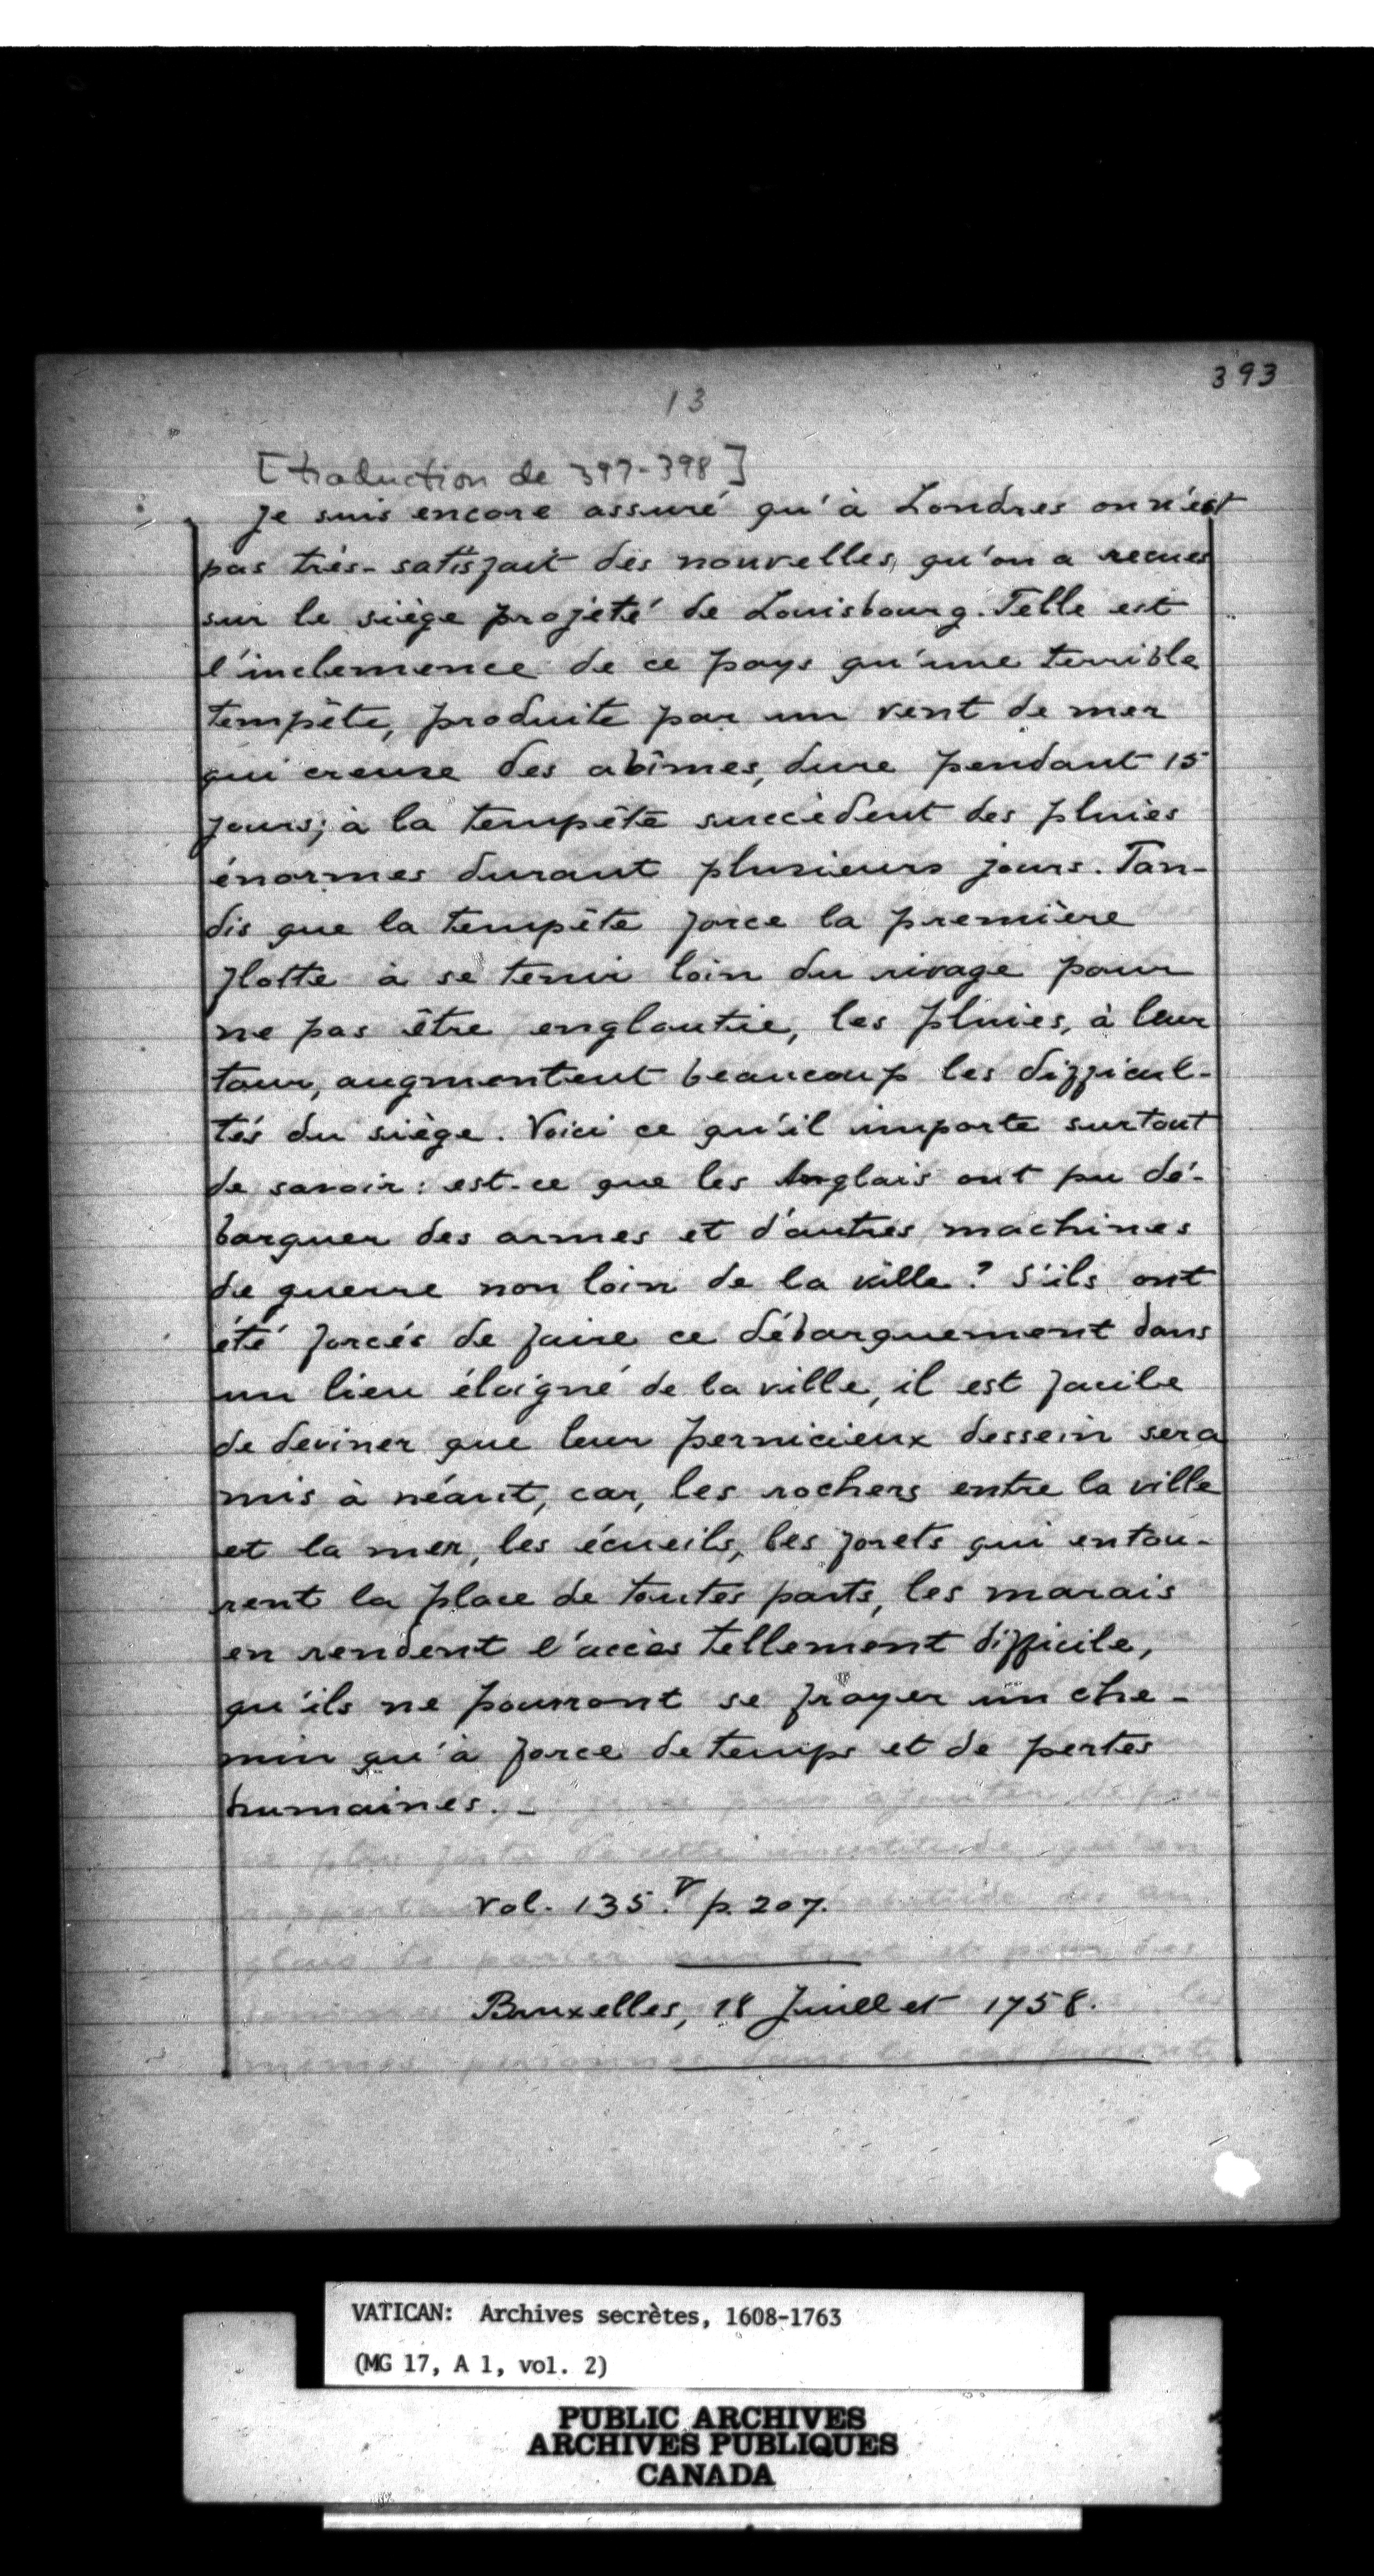 393
13
[traduction de 397-398]
Je suis encore assuré qu'à Londres on n'est
pas très-satisfait des nouvelles, qu'on a recues
sur le siège projeté de Louisbourg. Telle est
l'inclemence de ce pays qu'une terrible
tempête, produite par un vent de mer
qui creuse des abîmes, dure pendant 15
jours; à la tempête succèdent des pluies
énormes durant plusieurs jours. Tan-
dis que la tempête force la première
flotte à se tenir loin du rivage pour
ne pas être engloutie, les pluies, à leur
tour, augmentent beaucoup les difficul-
tés du siège. Voici ce qu'il importe surtout
de savoir: est-ce que les Anglais ont pu dé-
barquer des armes et d'autres machines
de guerre non loin de la ville? S'ils ont
été forcés de faire ce débarquement dans
un lieu éloigné de la ville, il est facile
de deviner que leur pernicieux dessein sera
mis à néant, car, les rochers entre la ville
et la mer, les écueils, les forets qui entou-
rent la place de toutes parts, les marais
en rendent l'accès tellement difficile,
qu'ils ne pourront se frayer un che-
min qu'à force de temps et de pertes
humaines. -
Vol. 135. v p. 207.
Bruxelles, 18 Juillet 1758.
VATICAN: Archives secrètes, 1608-1763
(MG 17, A 1, vol. 2)
PUBLIC ARCHIVES
ARCHIVES PUBLIQUES
CANADA